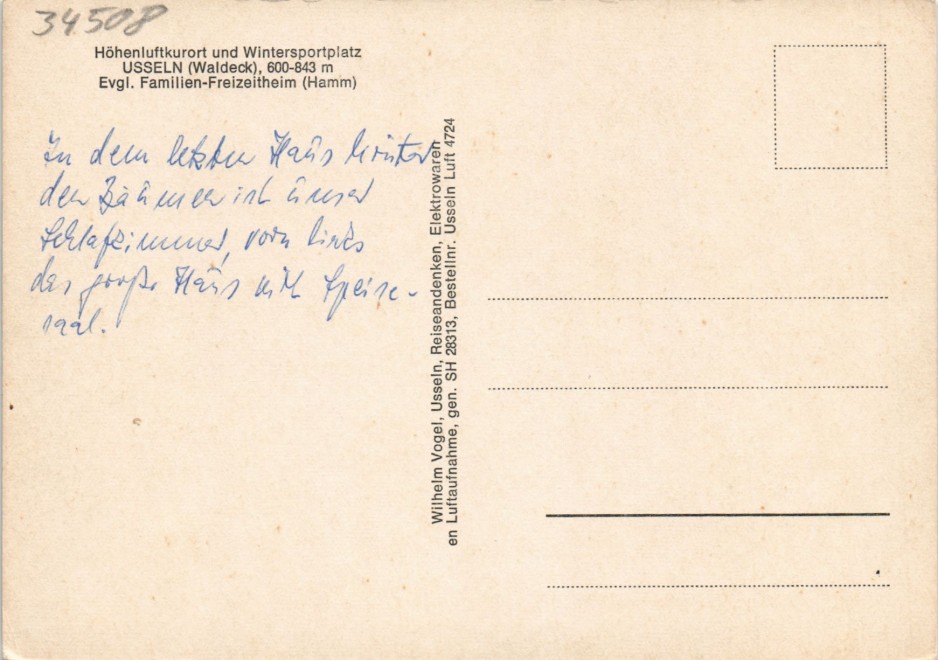 34508
Höhenluftkurort und Wintersportplatz
USSELN (Waldeck), 600-843 m
Evgl. Familien-Freizeitheim (Hamm)
In dem letzten Haus hinter
den Bäumen ist unser
Schlafzimmer, vorn links
das große Haus mit Speise-
saal.
Wilhelm Vogel, Usseln, Reiseandenken, Elektrowaren
en Luftaufnahme, gen. SH 28313, Bestellnr. Usseln Luft 4724